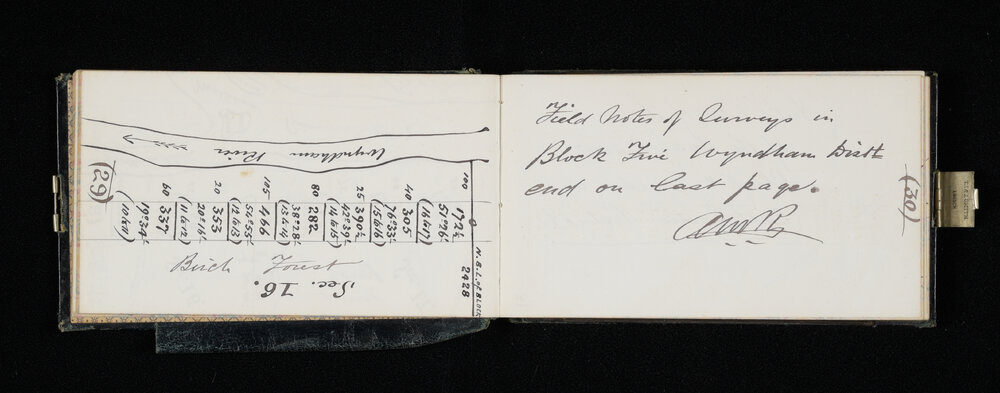 N.B.L. of BLOCK
2428
0
100 172½
51°26'
(16 to 17)
40 305
76°33'
(15 to 16)
25 390½
42°39'
(14 to 15)
80 282
38°28'
(13 to 14)
105 466
54°55'
(12 to 13)
20 353
20°16'
(11 to 12)
60 337
19°34'
(10 to 11)
Wyndham River
Birch Forest
Sec. 16.
(29)
Field Notes of Surveys in
Block Five Wyndham Distt
end on last page.
(30)